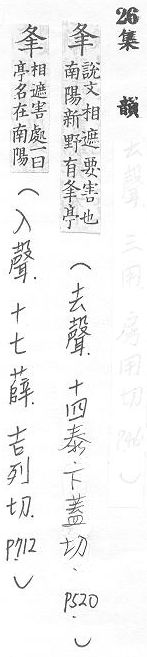 26
集韻
夆
說文相遮要害也
南陽新野有夆亭
(去聲.十四泰.下蓋切.P520.)
夆
相遮害處一曰
亭名在南陽
(入聲.十七薛.吉列切.P712.)